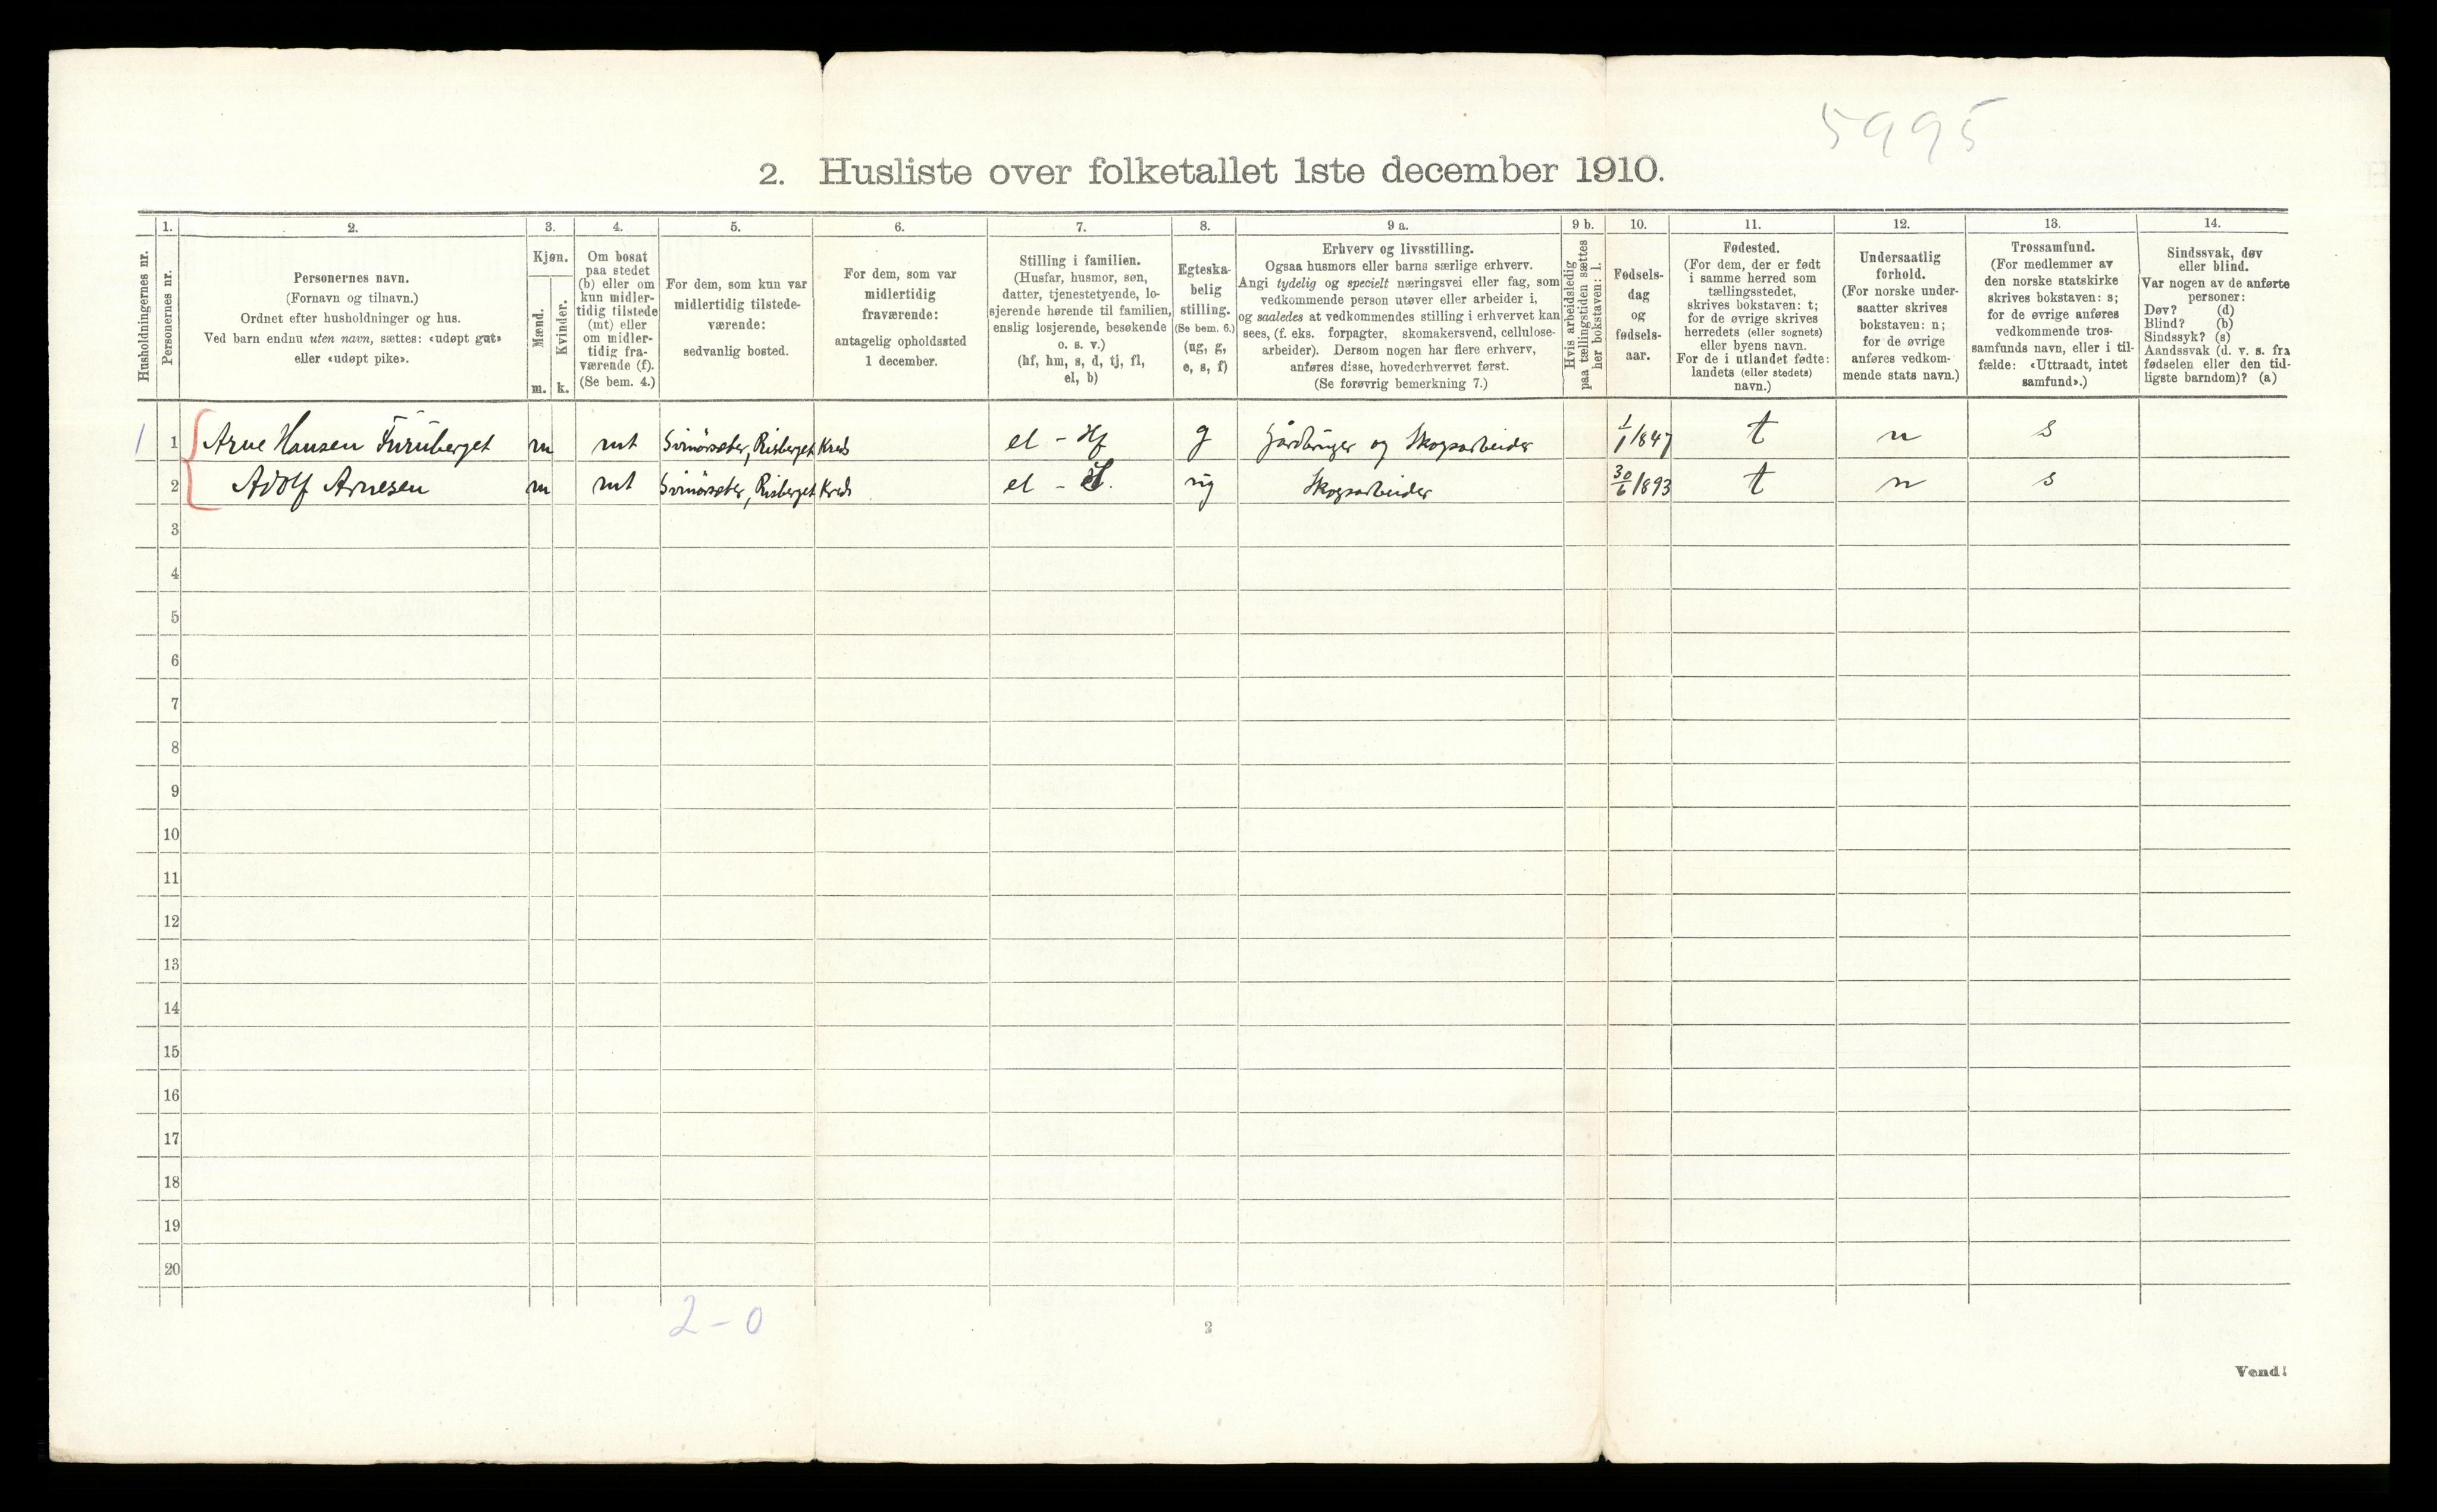 5995
2. Husliste over folketallet 1ste december 1910.
Husholdningernes nr.
1.
Personernes nr.
2.
Personernes navn.
(Fornavn og tilnavn.)
Ordnet efter husholdninger og hus.
Ved barn endnu uten navn, sættes: «udøpt gut»
eller «udøpt pike».
3.
Kjøn.
Mænd.
Kvinder.
m.
k.
4.
Om bosat
paa stedet
(b) eller om
kun midler-
tidig tilstede
(mt) eller
om midler-
tidig fra-
værende (f).
(Se bem. 4.)
5.
For dem, som kun var
midlertidig tilstede-
værende:
sedvanlig bosted.
6.
For dem, som var
midlertidig
fraværende:
antagelig opholdssted
1 december.
7.
Stilling i familien.
(Husfar, husmor, søn,
datter, tjenestetyende, lo-
sjerende hørende til familien,
enslig losjerende, besøkende
o. s. v.)
(hf, hm, s, d, tj, fl,
el, b)
8.
Egteska-
belig
stilling.
(Se bem. 6.)
(ug, g,
e, s, f)
9 a.
Erhverv og livsstilling.
Ogsaa husmors eller barns særlige erhverv.
Angi tydelig og specielt næringsvei eller fag, som
vedkommende person utøver eller arbeider i,
og saaledes at vedkommendes stilling i erhvervet kan
sees, (f. eks. forpagter, skomakersvend, cellulose-
arbeider). Dersom nogen har flere erhverv,
anføres disse, hovederhvervet først.
(Se forøvrig bemerkning 7.)
9 b.
Hvis arbeidsledig
paa tællingstiden sættes
her bokstaven: l.
10.
Fødsels-
dag
og
fødsels-
aar.
11.
Fødested.
(For dem, der er født
i samme herred som
tællingsstedet,
skrives bokstaven: t;
for de øvrige skrives
herredets (eller sognets)
eller byens navn.
For de i utlandet fødte:
landets (eller stedets)
navn.)
12.
Undersaatlig
forhold.
(For norske under-
saatter skrives
bokstaven: n;
for de øvrige
anføres vedkom-
mende stats navn.)
13.
Trossamfund.
(For medlemmer av
den norske statskirke
skrives bokstaven: s;
for de øvrige anføres
vedkommende tros-
samfunds navn, eller i til-
fælde: «Uttraadt, intet
samfund».)
14.
Sindssvak, døv
eller blind.
Var nogen av de anførte
personer:
Døv? (d)
Blind? (b)
Sindssyk? (s)
Aandssvak (d. v. s. fra
fødselen eller den tid-
ligste barndom)? (a)
1 1 Arne Hansen Furuberget m mt Svinörsæter, Risberget Kreds el - Hf g Gårdbruger og Skogsarbeider 1/1 1847 t n s
2 Adolf Arnesen m mt Svinörsæter, Risberget Kreds el - ug Skogsarbeider 30/6 1893 t n s
3
4
5
6
7
8
9
10
11
12
13
14
15
16
17
18
19
20
2-0
2
Vend!